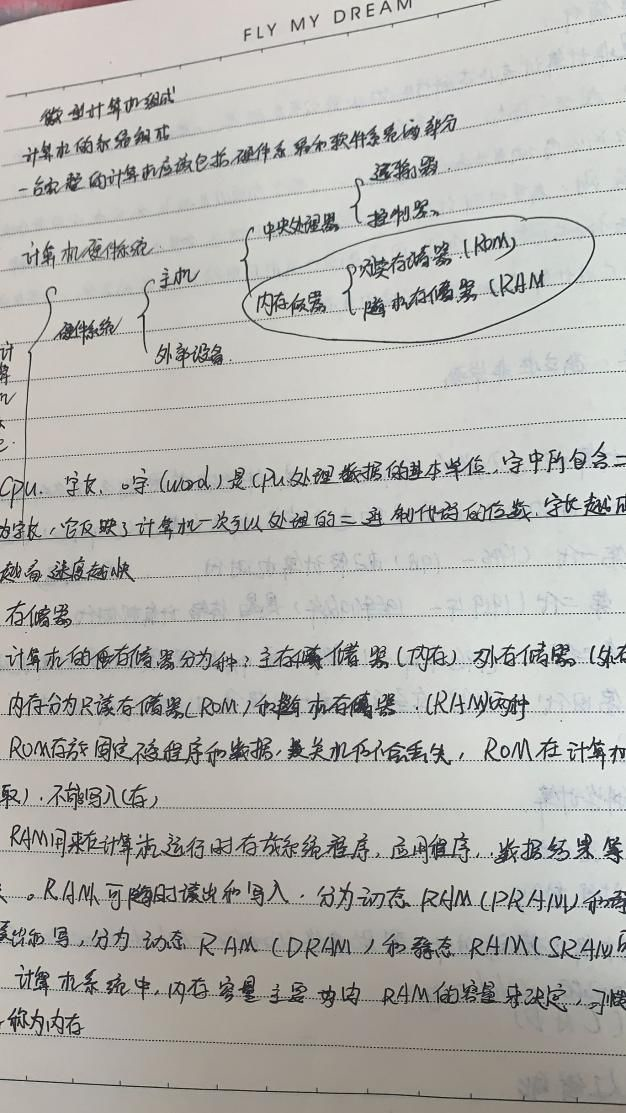 FLY MY DREAM
微型计算机组成
计算机的系统组成
一台完整的计算机应该包括硬件系统和软件系统两部分
运输器
中央处理器
控制器
计算机硬件系统
主机
只读存储器(ROM)
内存储器
随机存储器(RAM
硬件系统
外部设备
计
算
机
CPU. 字长. 字(word)是CPU处理数据的基本单位,字中所包含二
为字长,它反映了计算机一次可以处理的二进制代码的位数,字长越
越高 速度越快
存储器
计算机的存储器分为种:主存储器(内存) 外存储器(外存
内存分为只读存储器(ROM)和随机存储器(RAM)两种
ROM存放固定不变程序和数据,关机仍不会丢失, ROM在计算机
取).不能写入(存)
RAM用来在计算机运行时存放系统程序,应用程序,数据结果等
。RAM可随时读出和写入.分为动态RAM(PRAM)和静
读出和写,分为动态RAM(DRAM)和静态RAM(SRAM)两
计算机系统中,内存容量主要由RAM的容量来决定,习惯
称为内存